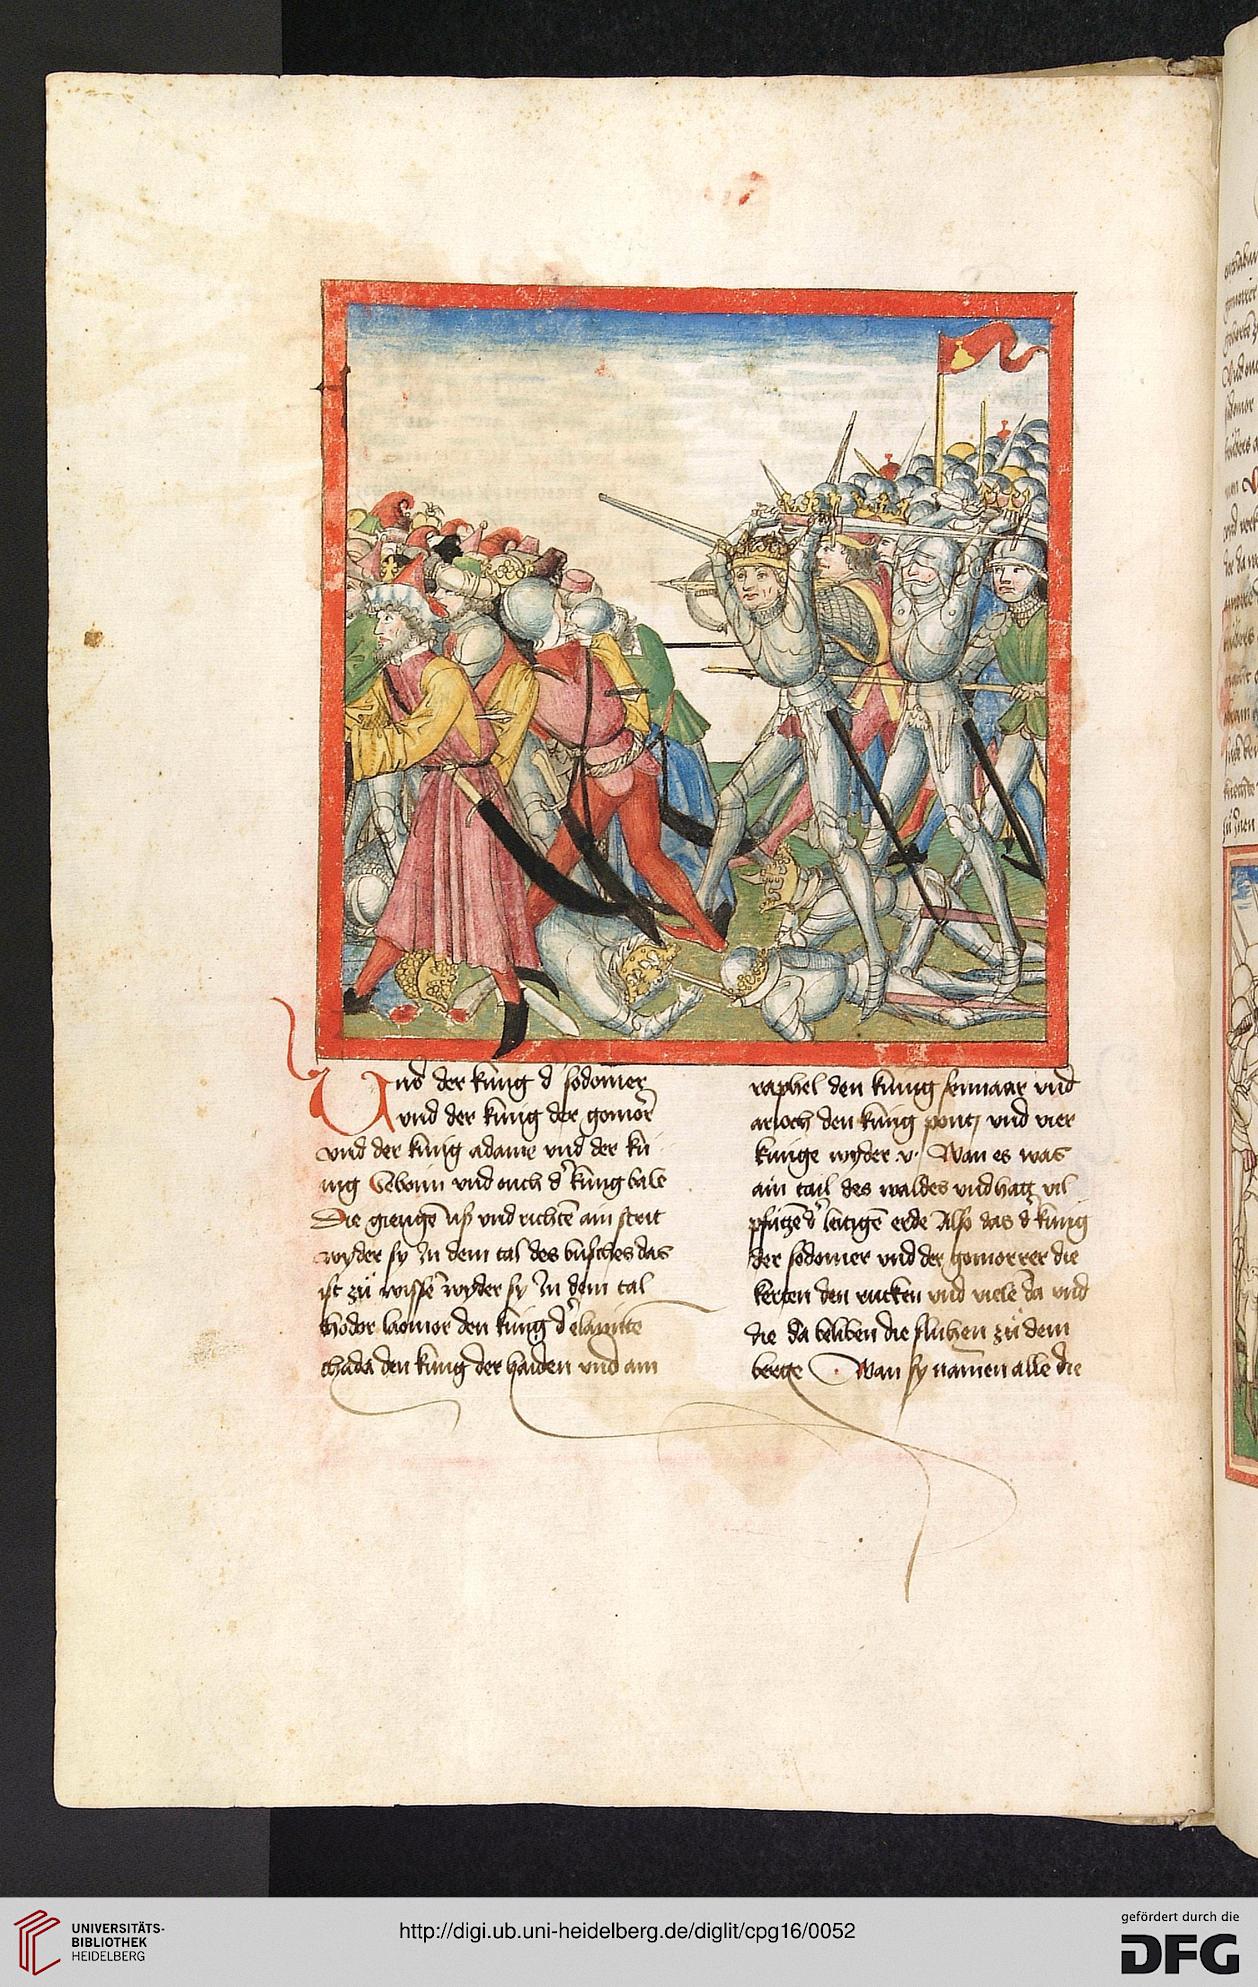 Und der kunig d sodomer
vnd der kunig der gomor
vnd der kunig adame vnd der ku
nig Seboim vnd ouch d kunig bale
Die giengē uß vnd richtē ain streit
wyder sy In dem tal des busches das
ist zů wissē wyder sy In dem tal
hodor laomor den kunig d elamite
thada den kunig der haiden vnd am
raphel den kunig sennaar vnd
arioch den kunig ponti vnd vier
kunige wyder v· Wan es was
ain tail des waldes vnd hatt vil
pfützē d leitigē erde Also das d kunig
der sodomer vnd der gomorrer die
kerten den rucken vnd viele da vnd
die da beliben die fluhen zů dem
berge · Wan sy namen alle die
UNIVERSITÄTS-
BIBLIOTHEK
HEIDELBERG
http://digi.ub.uni-heidelberg.de/diglit/cpg16/0052
gefördert durch die
DFG